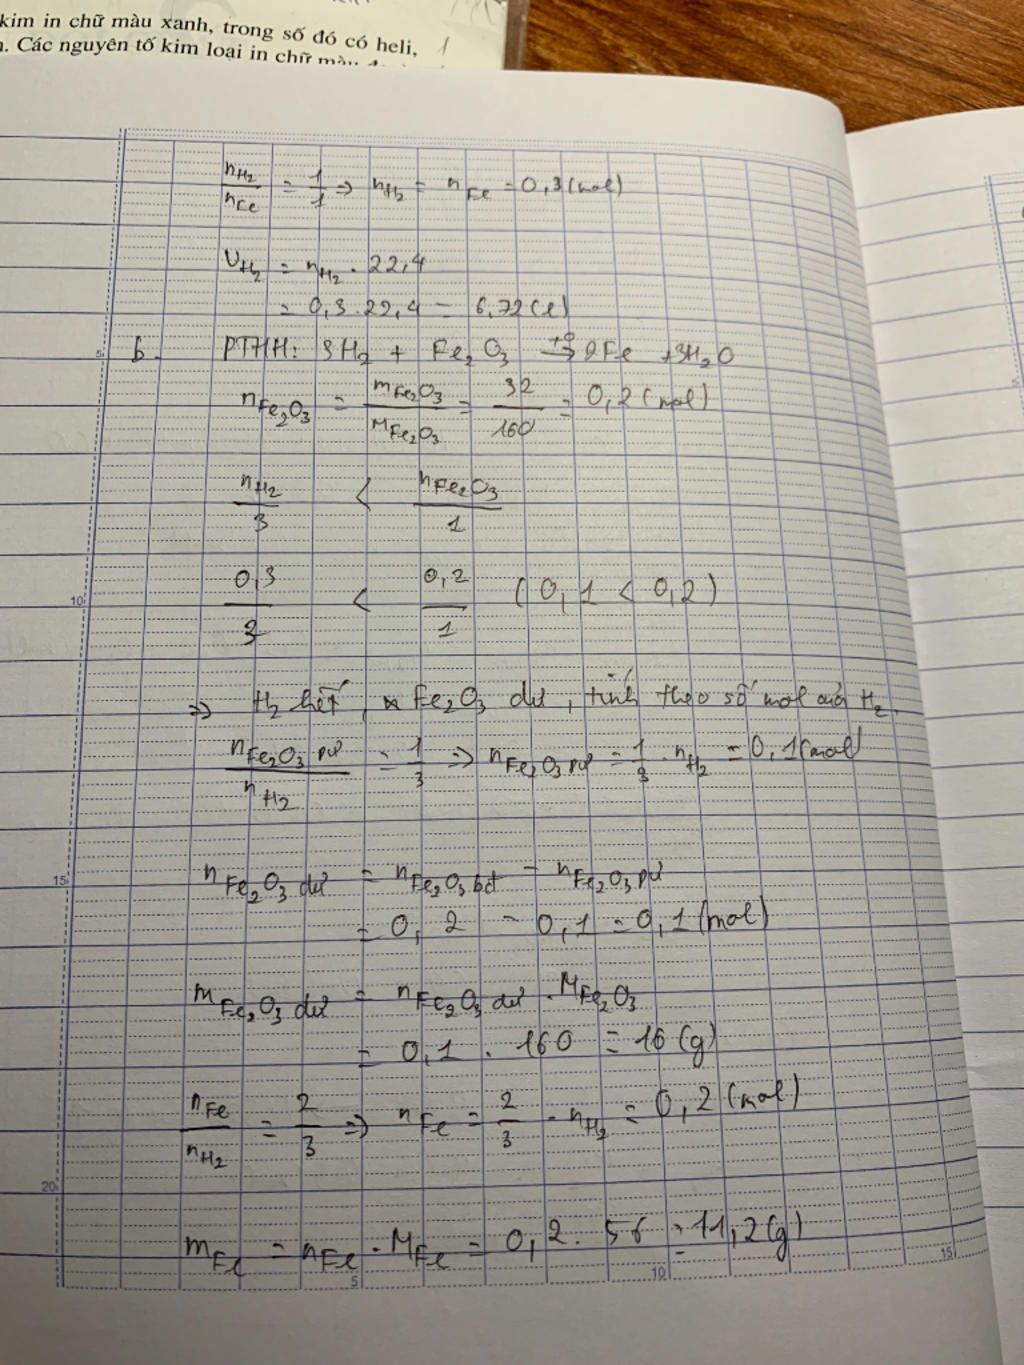 kim in chữ màu xanh, trong số đó có heli,
Các nguyên tố kim loại in chữ màu
nH₂/nFe = 1/1 => nH₂ = nFe = 0,3 (mol)
VH₂ = nH₂ . 22,4
= 0,3 . 22,4 = 6,72 (l)
b. PTHH: 3H₂ + Fe₂O₃ →(t°) 2Fe + 3H₂O
nFe₂O₃ = mFe₂O₃/MFe₂O₃ = 32/160 = 0,2 (mol)
nH₂/3 < nFe₂O₃/1
0,3/3 < 0,2/1 (0,1 < 0,2)
=> H₂ hết, Fe₂O₃ dư, tính theo số mol của H₂.
nFe₂O₃ pứ/nH₂ = 1/3 => nFe₂O₃ pứ = 1/3 . nH₂ = 0,1 (mol)
nFe₂O₃ dư = nFe₂O₃ bđ - nFe₂O₃ pứ
= 0,2 - 0,1 = 0,1 (mol)
mFe₂O₃ dư = nFe₂O₃ dư . MFe₂O₃
= 0,1 . 160 = 16 (g)
nFe/nH₂ = 2/3 => nFe = 2/3 . nH₂ = 0,2 (mol)
mFe = nFe . MFe = 0,2 . 56 = 11,2 (g)
5
10
15
20
5
10
15